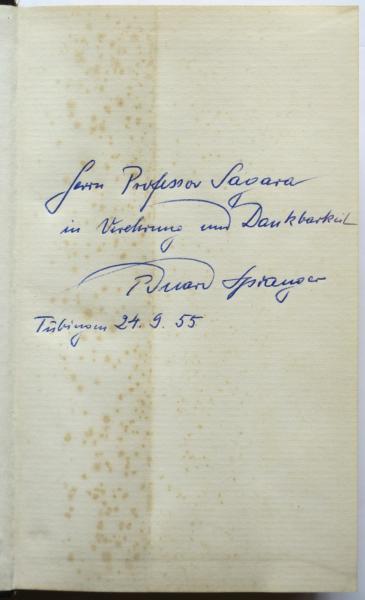 Herrn Professor Sagara
in Verehrung und Dankbarkeit
Eduard Spranger
Tübingen 24. 9. 55